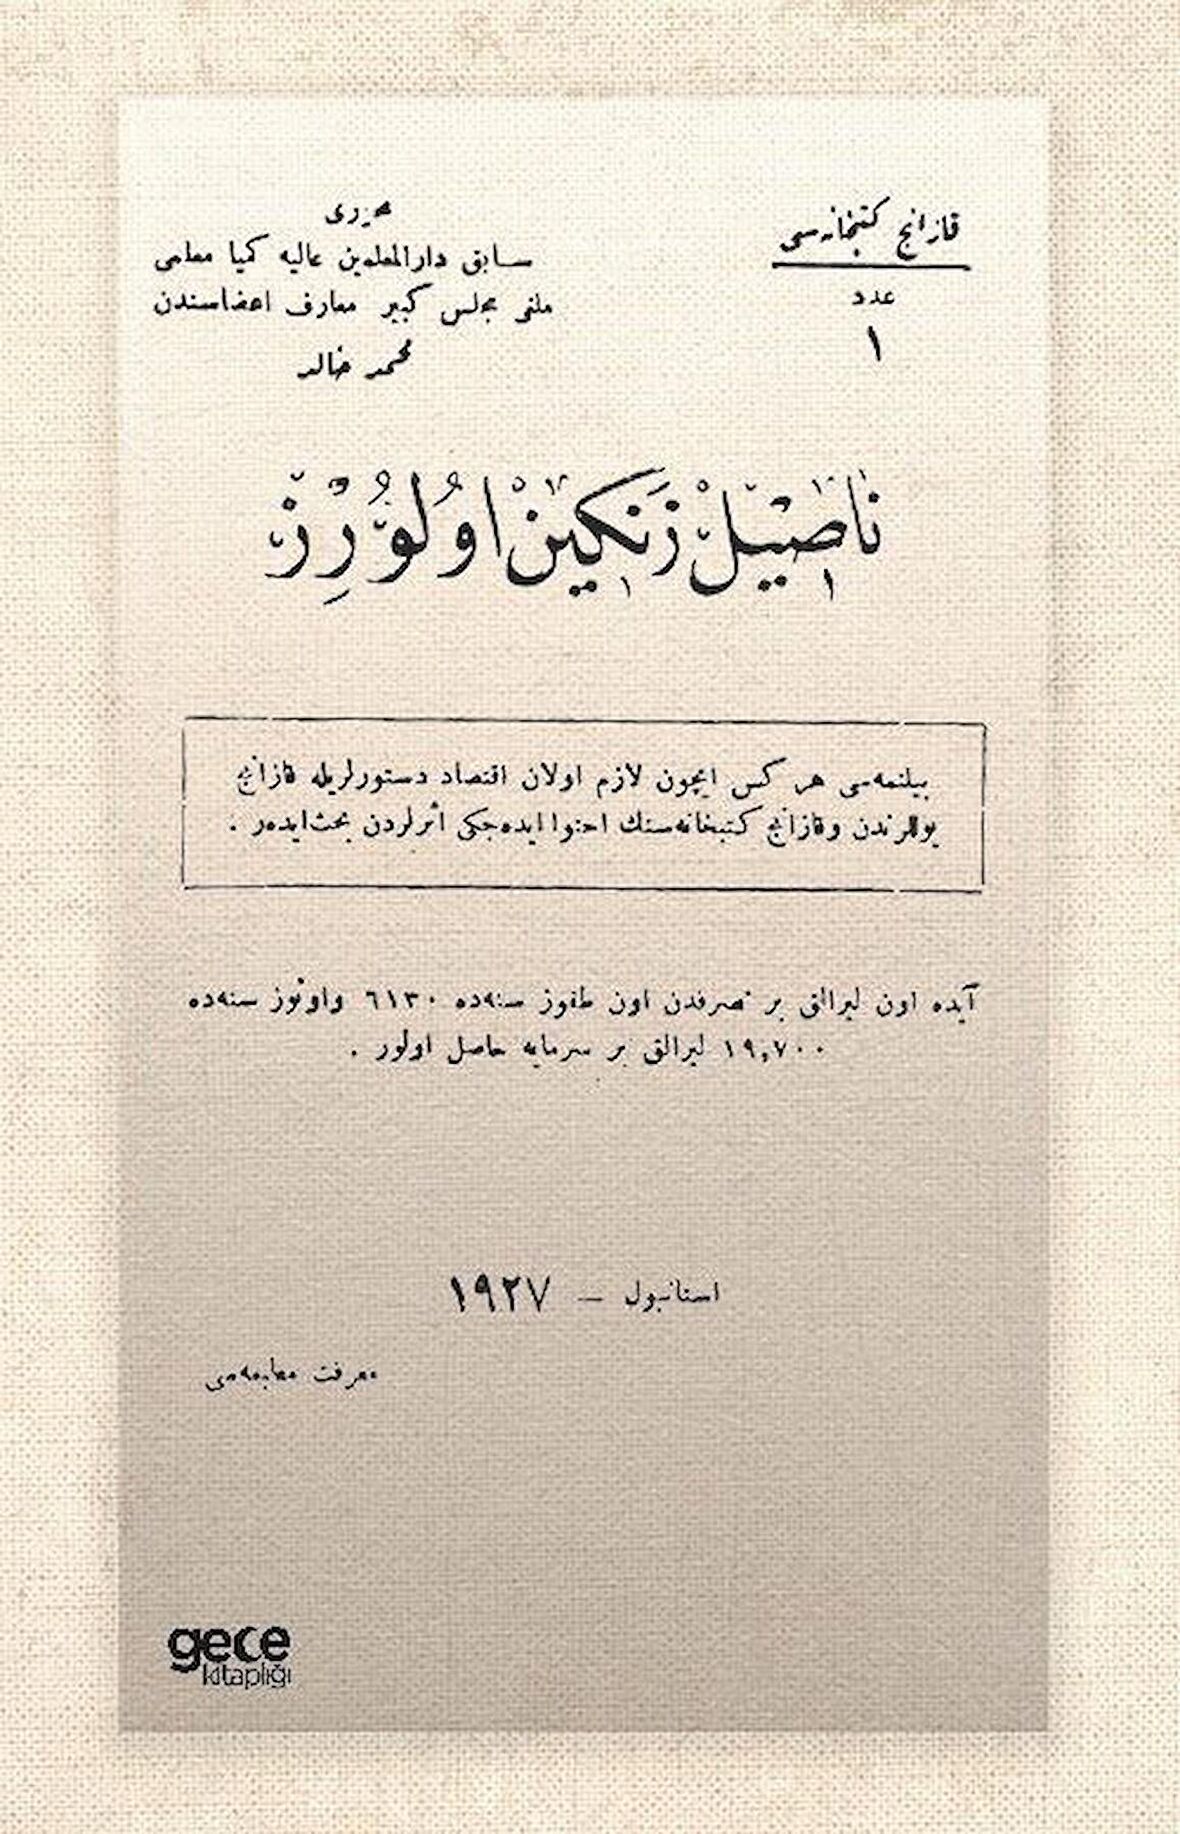 قازانج كتبخانه‌سى
عدد
١
محررى
سابق دارالمعلمين عاليه كميا معلمى
ملغى مجلس كبير معارف اعضاسندن
محمد خالد
ناصيل زنكين اولورز
بيلنمه‌سى هر كس ايچون لازم اولان اقتصاد دستورلريله قازانج
يوللرندن وقازانج كتبخانه‌سنك احتوا ايده‌جكى اثرلردن بحث ايده‌ر .
آيده اون ليرالق بر تصرفدن اون طقوز سنه‌ده ٦١٣٠ واوتوز سنه‌ده
١٩,٧٠٠ ليرالق بر سرمايه حاصل اولور .
استانبول — ١٩٢٧
معرفت مطبعه‌سى
gece
kitaplığı